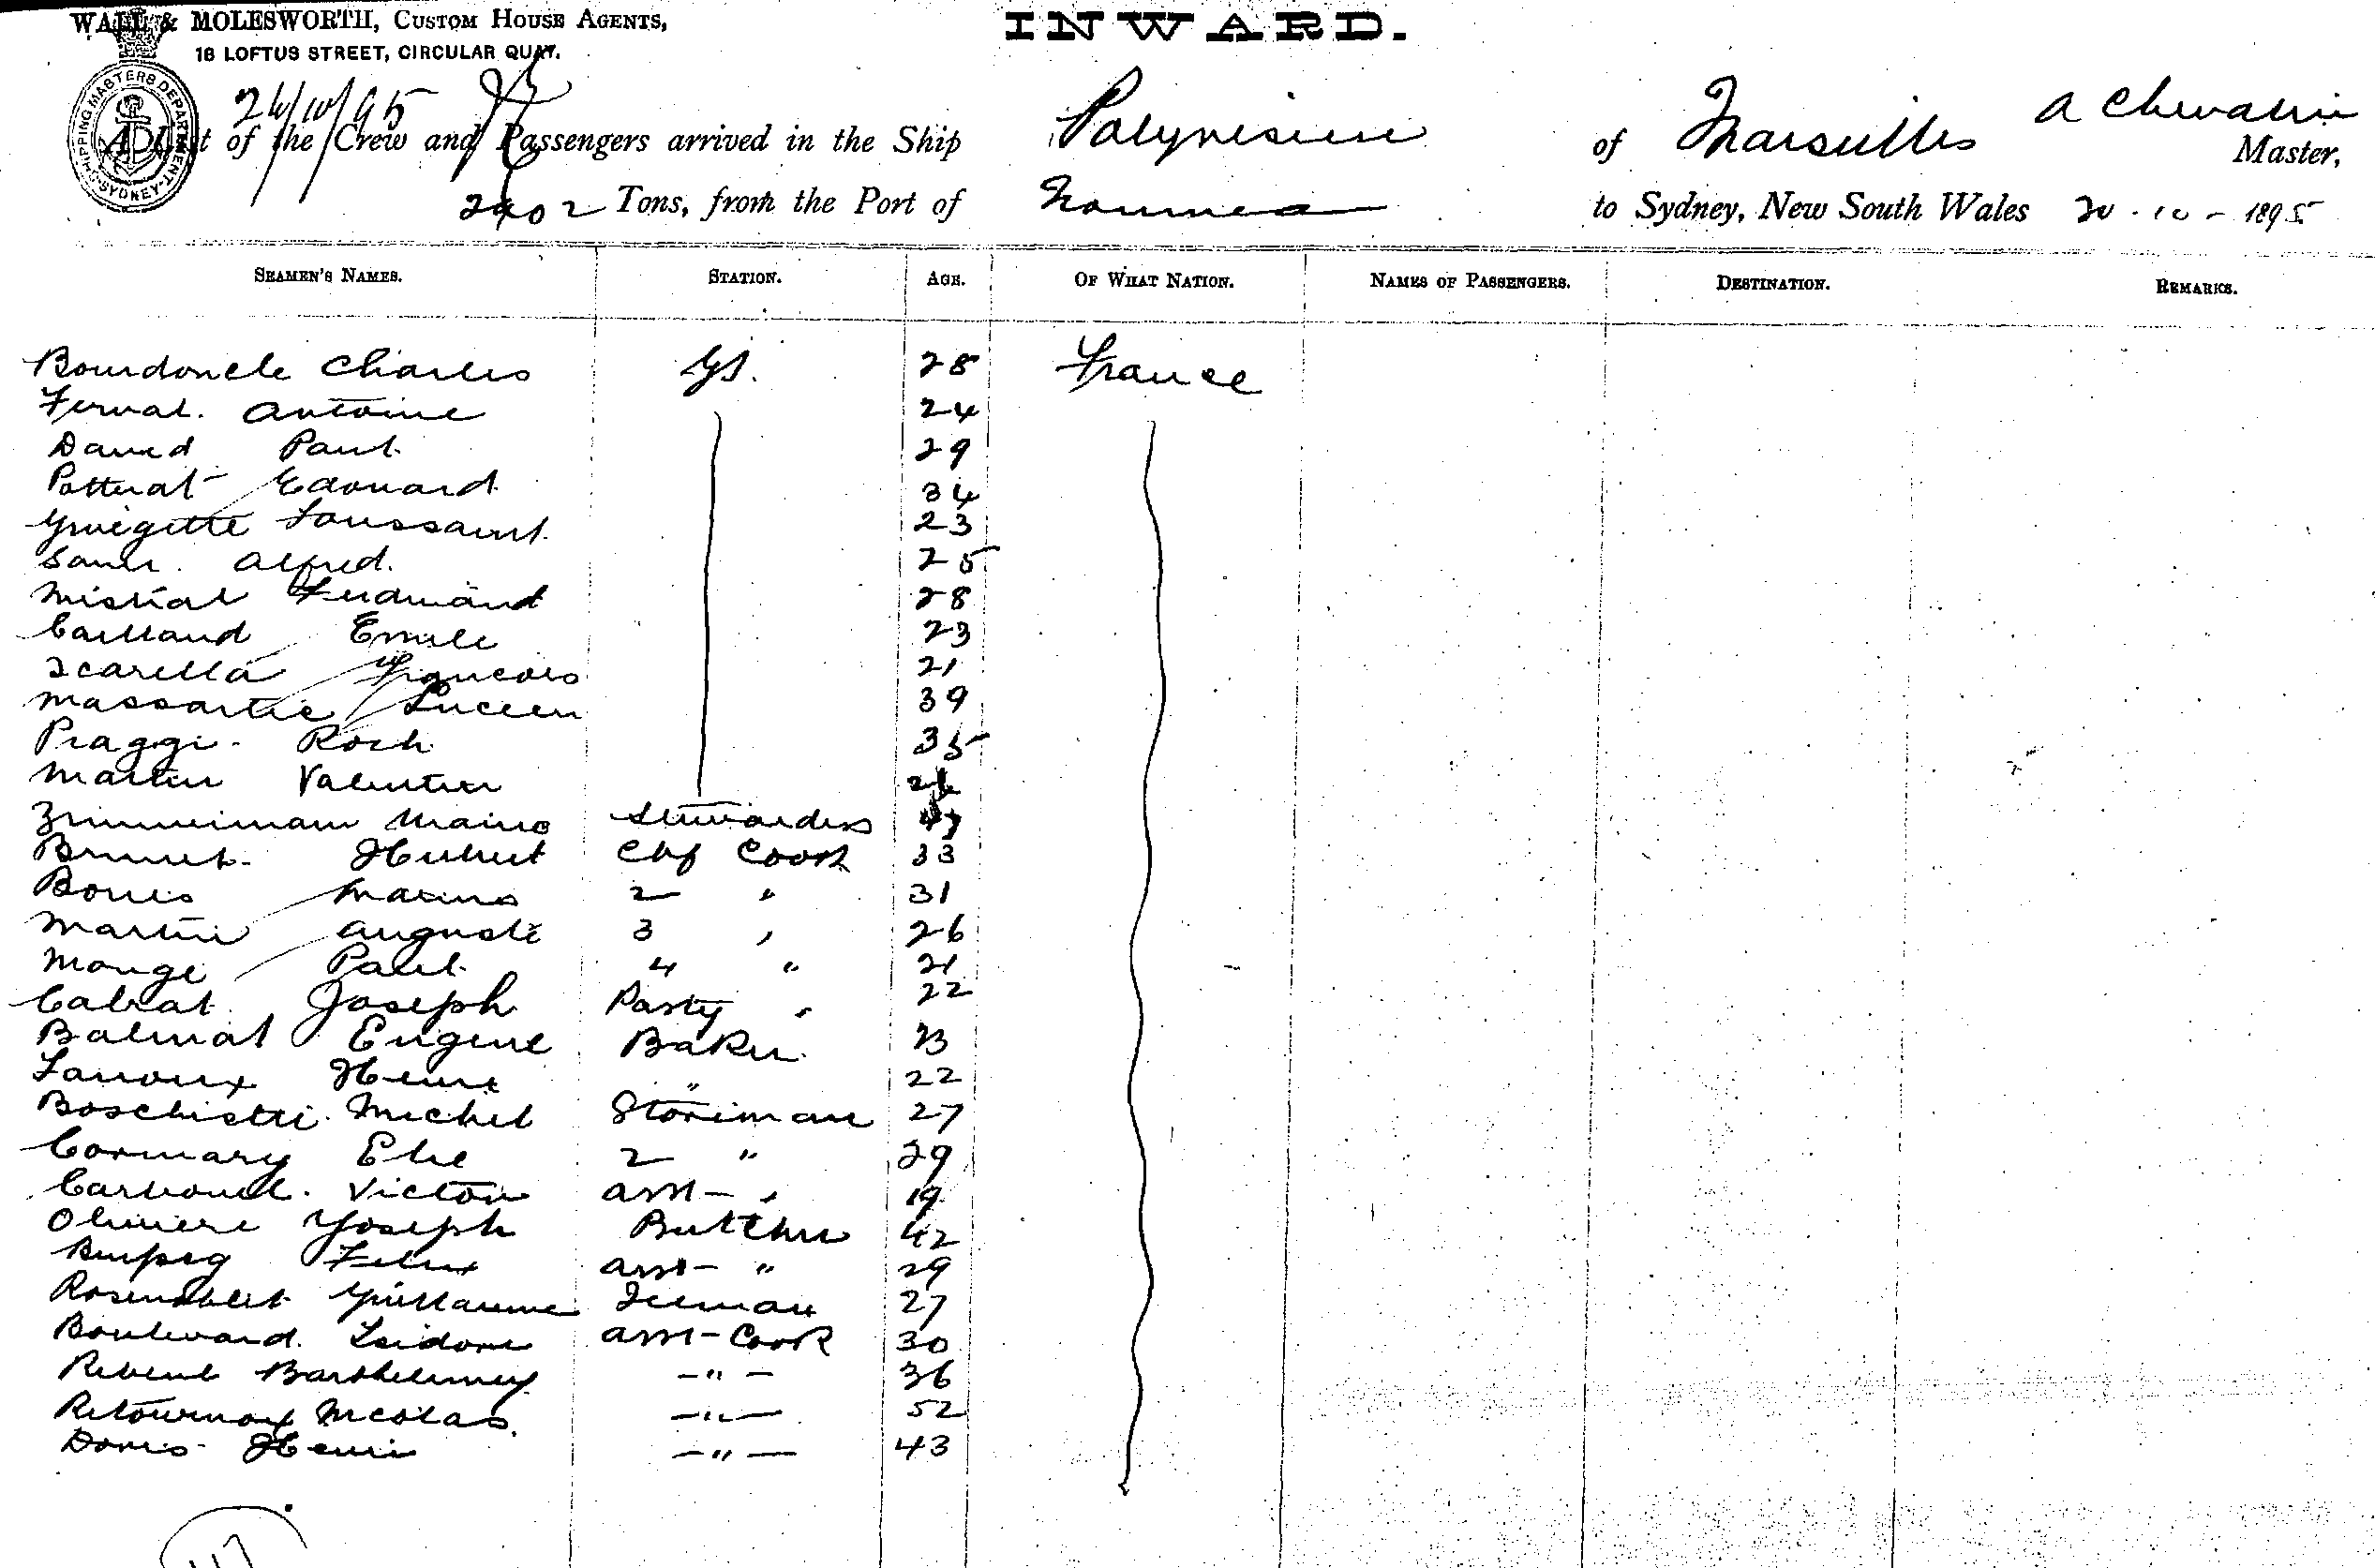 WALL & MOLESWORTH, CUSTOM HOUSE AGENTS,
16 LOFTUS STREET, CIRCULAR QUAY.
INWARD.
SHIPPING MASTERS DEPARTMENT SYDNEY
A List of the Crew and Passengers arrived in the Ship Polynesien of Marseilles A Chevalier Master,
2902 Tons, from the Port of Noumea to Sydney, New South Wales 20-10-1895
SEAMEN'S NAMES. STATION. AGE. OF WHAT NATION. NAMES OF PASSENGERS. DESTINATION. REMARKS.
Bourdoncle Charles 28 France
Antoine 24
David Paul 29
Potterat Edouard 34
Toussaint 23
Alfred. 25
Mistral Ferdinand 28
Caillaud Emile 23
Scarella Francois 21
Massartie Lucien 39
Piaggi Roch 35
Martin Valentin
Zimmermann Stewardess
Brunet Hubert Chf Cook 33
2 " 31
Martin Auguste 3 " 26
Monge Paul 4 " 21
Calvat Joseph Pasty " 22
Balmat Eugene Baker 23
Lanoux Henri " 22
Boschietti Michel Storeman 27
Cormary Elie 2 " 29
Carbonel. Victor asst- " 19
Oliviere Joseph Butcher 42
Felix asst- " 29
Rosenoblet Guillaume 27
Boulevard. Isidore asst-Cook 30
Barthelemey -"- 36
Retournay Nicolas. -"- 52
Henri -"- 43